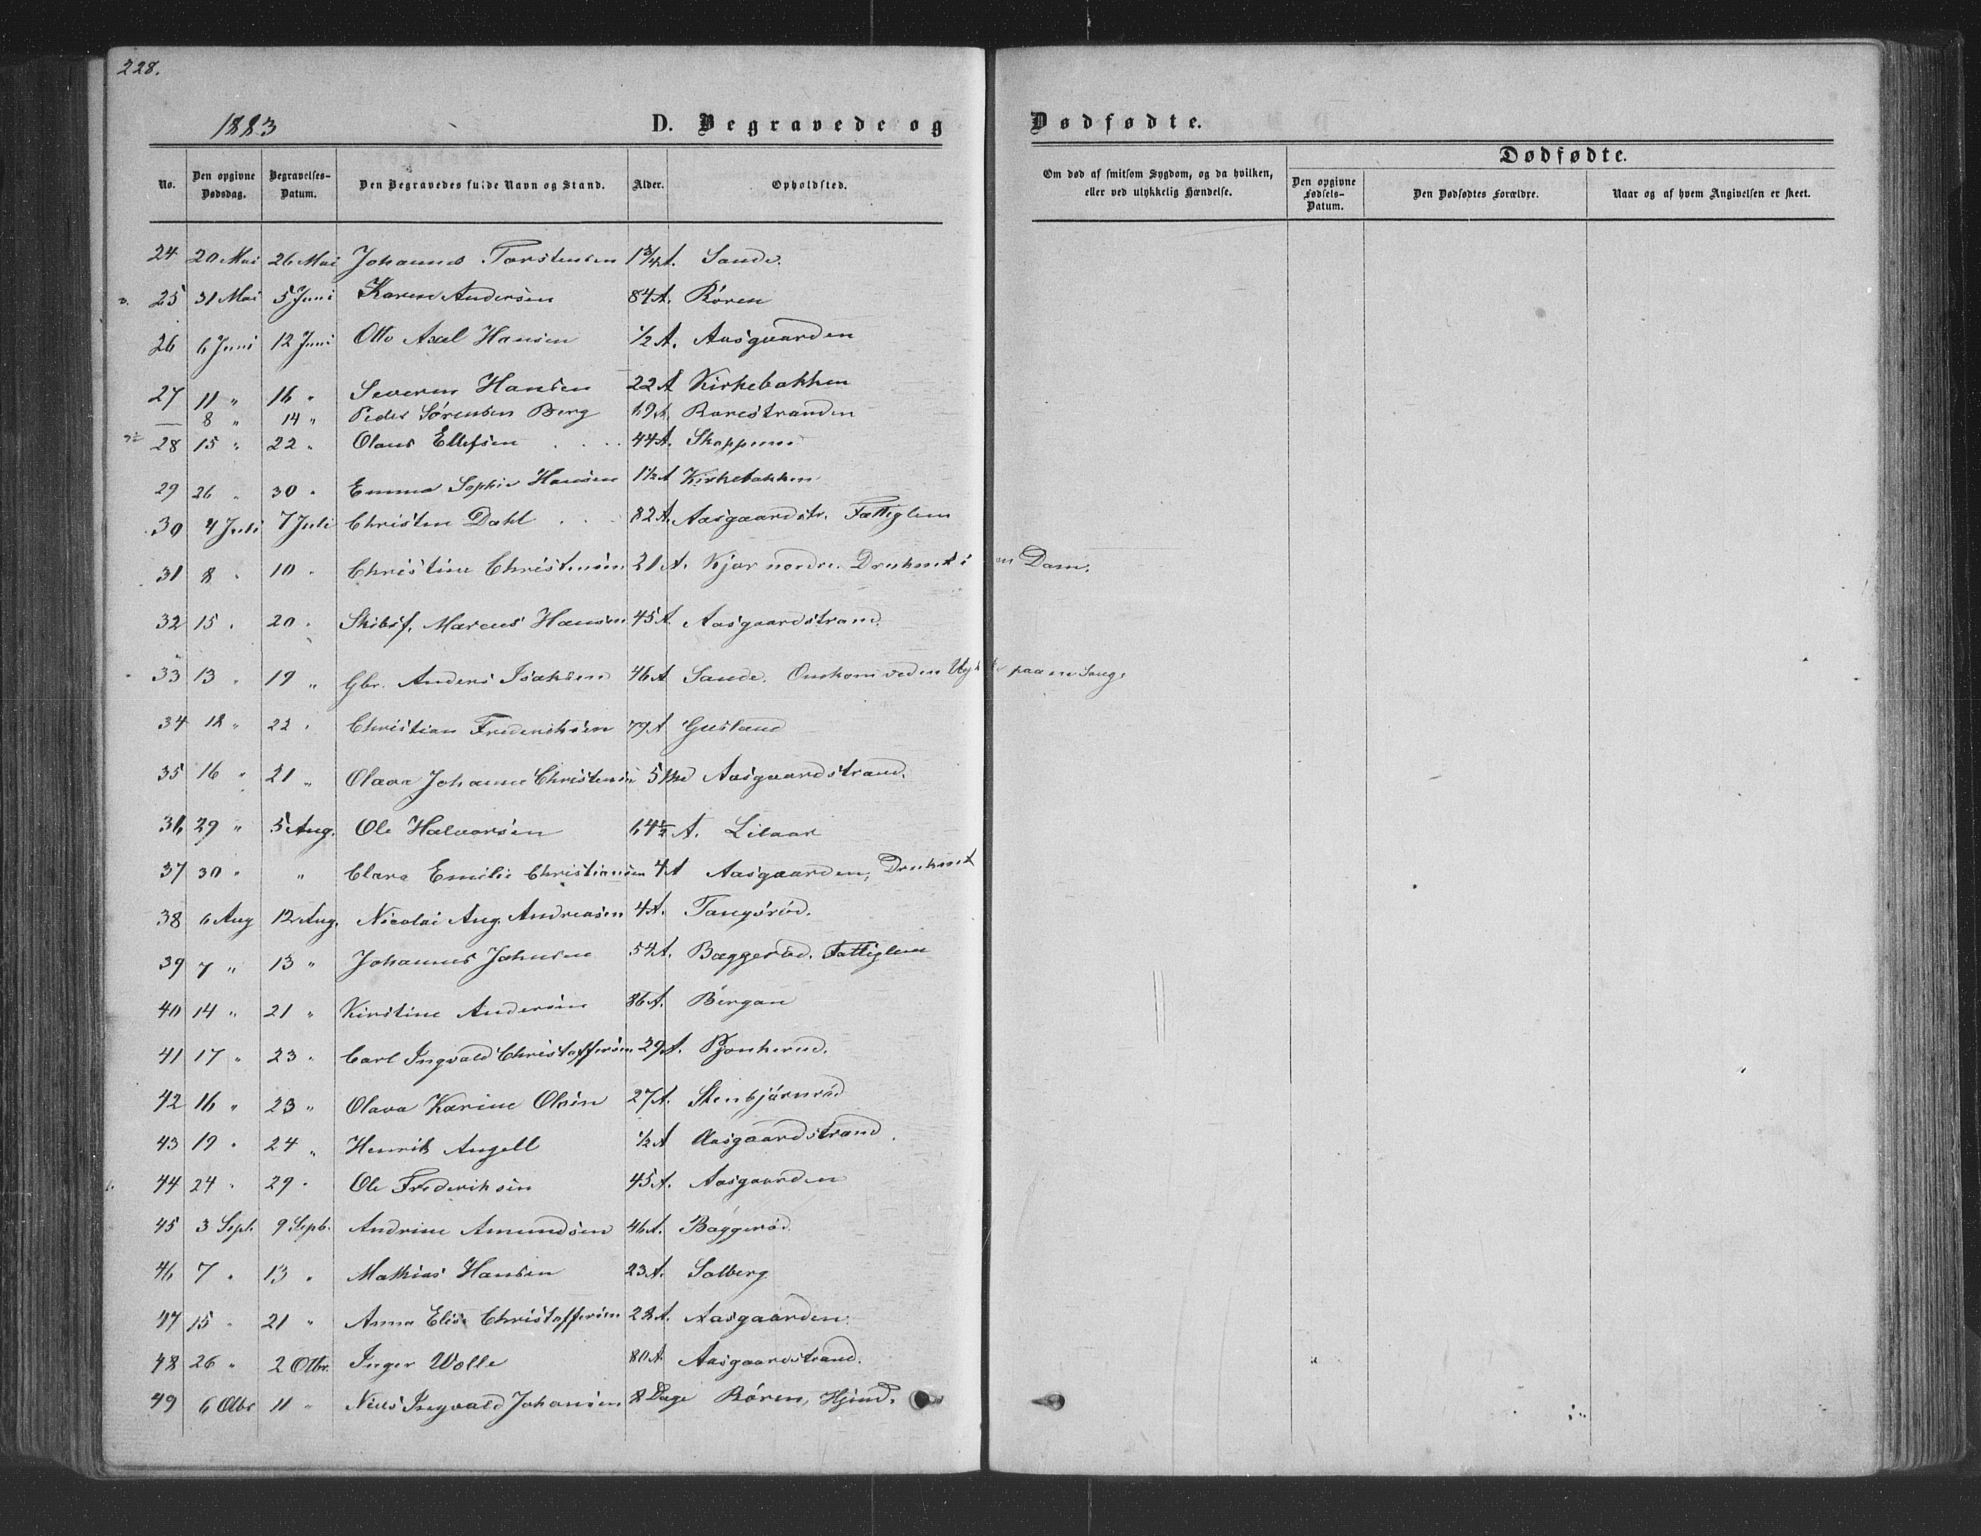 228.
1883
D. Begravede og Dødfødte.
No. Den opgivne Dødsdag. Begravelses-Datum. Den Begravedes fulde Navn og Stand. Alder. Opholdsted. Om død af smitsom Sygdom, og da hvilken, eller ved ulykkelig Hændelse. Dødfødte. Den opgivne Fødsels-Datum. Den Dødfødtes Forældre. Naar og af hvem Angivelsen er skeet.
24 20 Mai 26 Mai Johannes Torstensen 1 3/4 A. Sande.
25 31 Mai 5 Juni Karen Andersen 84 A. Røren
26 6 Juni 12 Juni Otto Axel Hansen 1/2 A. Aasgaarden
27 11 " 16 " Severin Hansen 22 A Kirkebakken
— 8 " 14 " Peder Sørensen Berg 69 A. Borrestranden
28 15 " 22 " Olaus Ellefsen 44 A. Skoppum
29 26 " 30 " Emma Sophie Hansen 1 1/2 A Kirkebakken
30 4 Juli 7 Juli Christen Dahl 82 A. Aasgaardstr. Fattiglem
31 8 " 10 " Christine Christensen 21 A. Kjær nordre. Druknet i en Dam.
32 15 " 20 " Skibsf. Marcus Hansen 45 A. Aasgaardstrand.
33 13 " 19 " Gbr. Anders Isaksen 46 A Sande. Omkom ved en paa en Saug.
34 18 " 22 " Christian Frederiksen 79 A Gusland
35 16 " 21 " Olava Johanne Christensen 5 Aasgaardstrand.
36 29 " 5 Aug. Ole Halvorsen 64 1/2 A.
37 30 " " Clara Emilie Christiansen 4 A Aasgaarden, Druknet
38 6 Aug 12 Aug. Nicolai Aug. Andreasen 4 A. Tangsrød.
39 7 " 13 " Johannes Johnsen 54 A. Baggerød. Fattiglem
40 14 " 21 " Kirstine Andersen 86 A. Bergan
41 17 " 23 " Carl Ingvald Christoffersen 29 A.
42 16 " 23 " Olava Karine Olsen 27 A. Stenbjørnrød
43 19 " 24 " Henrik Angell 1/2 A Aasgaardstrand.
44 24 " 29 " Ole Frederiksen 45 A. Aasgaarden
45 3 Sept. 9 Septb. Andrine Amundsen 46 A. Baggerød
46 7 " 13 " Mathias Hansen 23 A. Solberg
47 15 " 21 " Anna Elise Christoffersen 28 A. Aasgaarden.
48 26 " 2 Otbr. Inger Wolle 80 A Aasgaardstrand.
49 6 Otbr 11 " Niels Ingvald Johansen 8 Dage Røren, Hjmd.